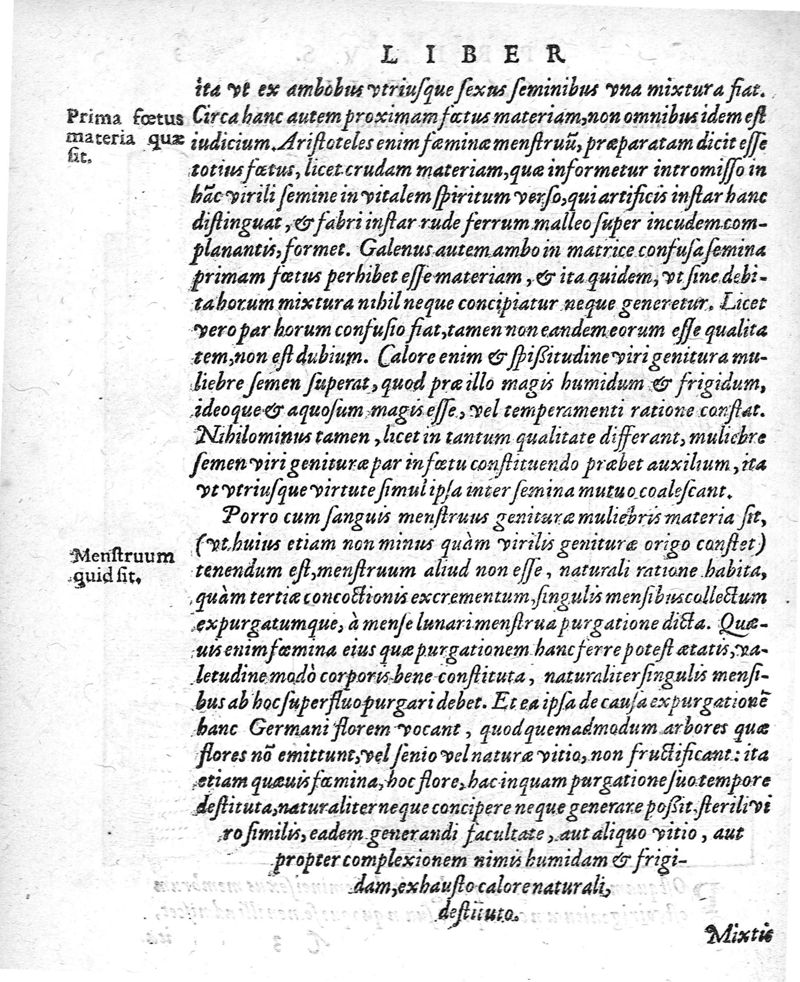 LIBER
ita vt ex ambobus vtriusque sexus seminibus vna mixtura fiat.
Prima fœtus
materia quæ
sit.
Circa hanc autem proximam fœtus materiam, non omnibus idem est
iudicium. Aristoteles enim fœminæ menstruū, præparatam dicit esse
totius fœtus, licet crudam materiam, quæ informetur intromisso in
hāc virili semine in vitalem spiritum verso, qui artificis instar hanc
distinguat, & fabri instar rude ferrum malleo super incudem com-
planantis, formet. Galenus autem ambo in matrice confusa semina
primam fœtus perhibet esse materiam, & ita quidem, vt sine debi-
ta horum mixtura nihil neque concipiatur neque generetur. Licet
vero par horum confusio fiat, tamen non eandem eorum esse qualita
tem, non est dubium. Calore enim & spißitudine viri genitura mu-
liebre semen superat, quod præ illo magis humidum & frigidum,
ideoque & aquosum magis esse, vel temperamenti ratione constat.
Nihilominus tamen, licet in tantum qualitate differant, muliebre
semen viri genituræ par in fœtu constituendo præbet auxilium, ita
vt vtriusque virtute simul ipsa inter semina mutuo coalescant.
Porro cum sanguis menstruus genituræ muliebris materia sit,
(vt huius etiam non minus quàm virilis genituræ origo constet)
Menstruum
quid sit.
tenendum est, menstruum aliud non esse, naturali ratione habita,
quàm tertiæ concoctionis excrementum, singulis mensibus collectum
expurgatumque, à mense lunari menstrua purgatione dicta. Quæ-
uis enim fœmina eius quæ purgationem hanc ferre potest ætatis, va-
letudine modò corporis bene constituta, naturaliter singulis mensi-
bus ab hoc superfluo purgari debet. Et ea ipsa de causa expurgationē
hanc Germani florem vocant, quod quemadmodum arbores quæ
flores nō emittunt, vel senio vel naturæ vitio, non fructificant: ita
etiam quæuis fœmina, hoc flore, hac inquam purgatione suo tempore
destituta, naturaliter neque concipere neque generare poßit. sterili vi
ro similis, eadem generandi facultate, aut aliquo vitio, aut
propter complexionem nimis humidam & frigi-
dam, exhausto calore naturali,
destituto.
Mixtis